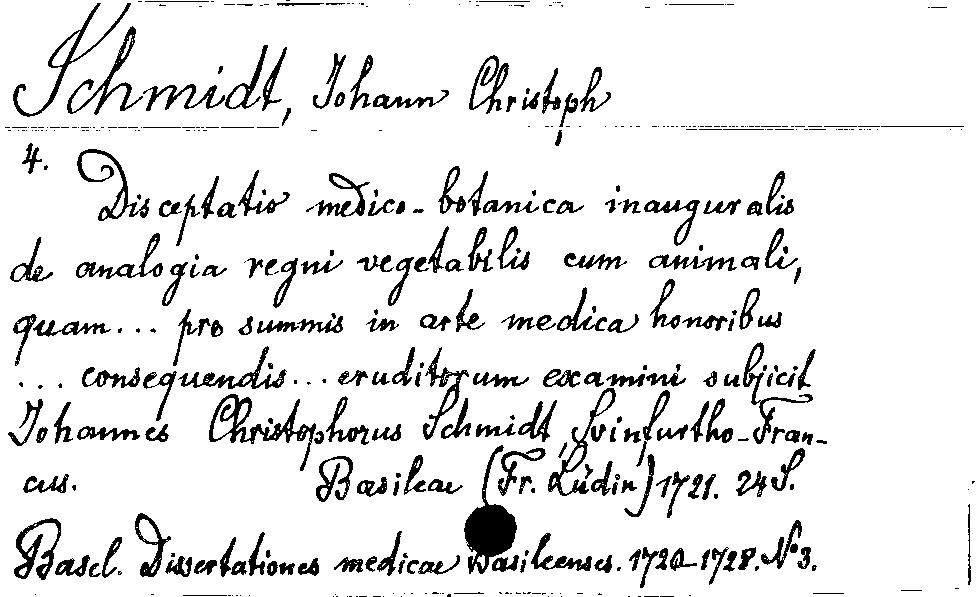 Schmidt, Johann Christoph
4.
Disceptatio medico-botanica inauguralis
de analogia regni vegetabilis cum animali,
quam... pro summis in arte medica honoribus
... consequendis... eruditorum examini subjicit
Johannes Christophorus Schmidt, Svinfurtho-Fran-
cus. Basileae (Fr. Lüdin) 1721. 24 S.
Basel. Dissertationes medicae Basileenses. 1720-1728. No 3.